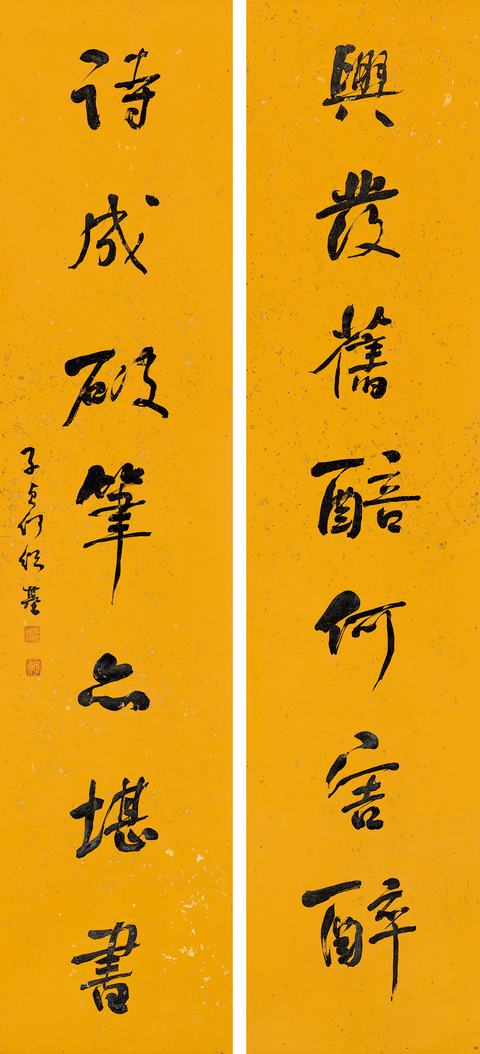 興發舊醅何害醉
詩成破筆亦堪書
子貞何紹基